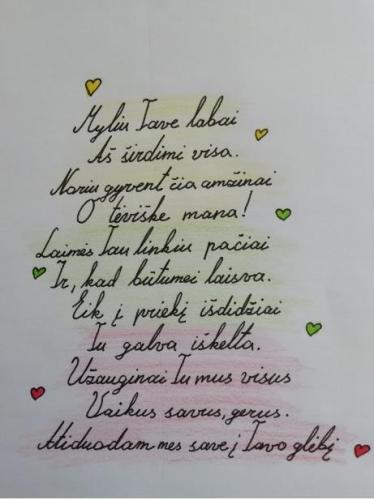 Myliu Tave labai
Aš širdimi visa.
Noriu gyvent čia amžinai
O tėviške mana!
Laimės Tau linkiu pačiai
Ir, kad būtumei laisva.
Eik į priekį išdidžiai
Tu galva iškelta.
Užauginai Tu mus visus
Vaikus savus, gerus.
Atiduodam mes save į Tavo glėbį